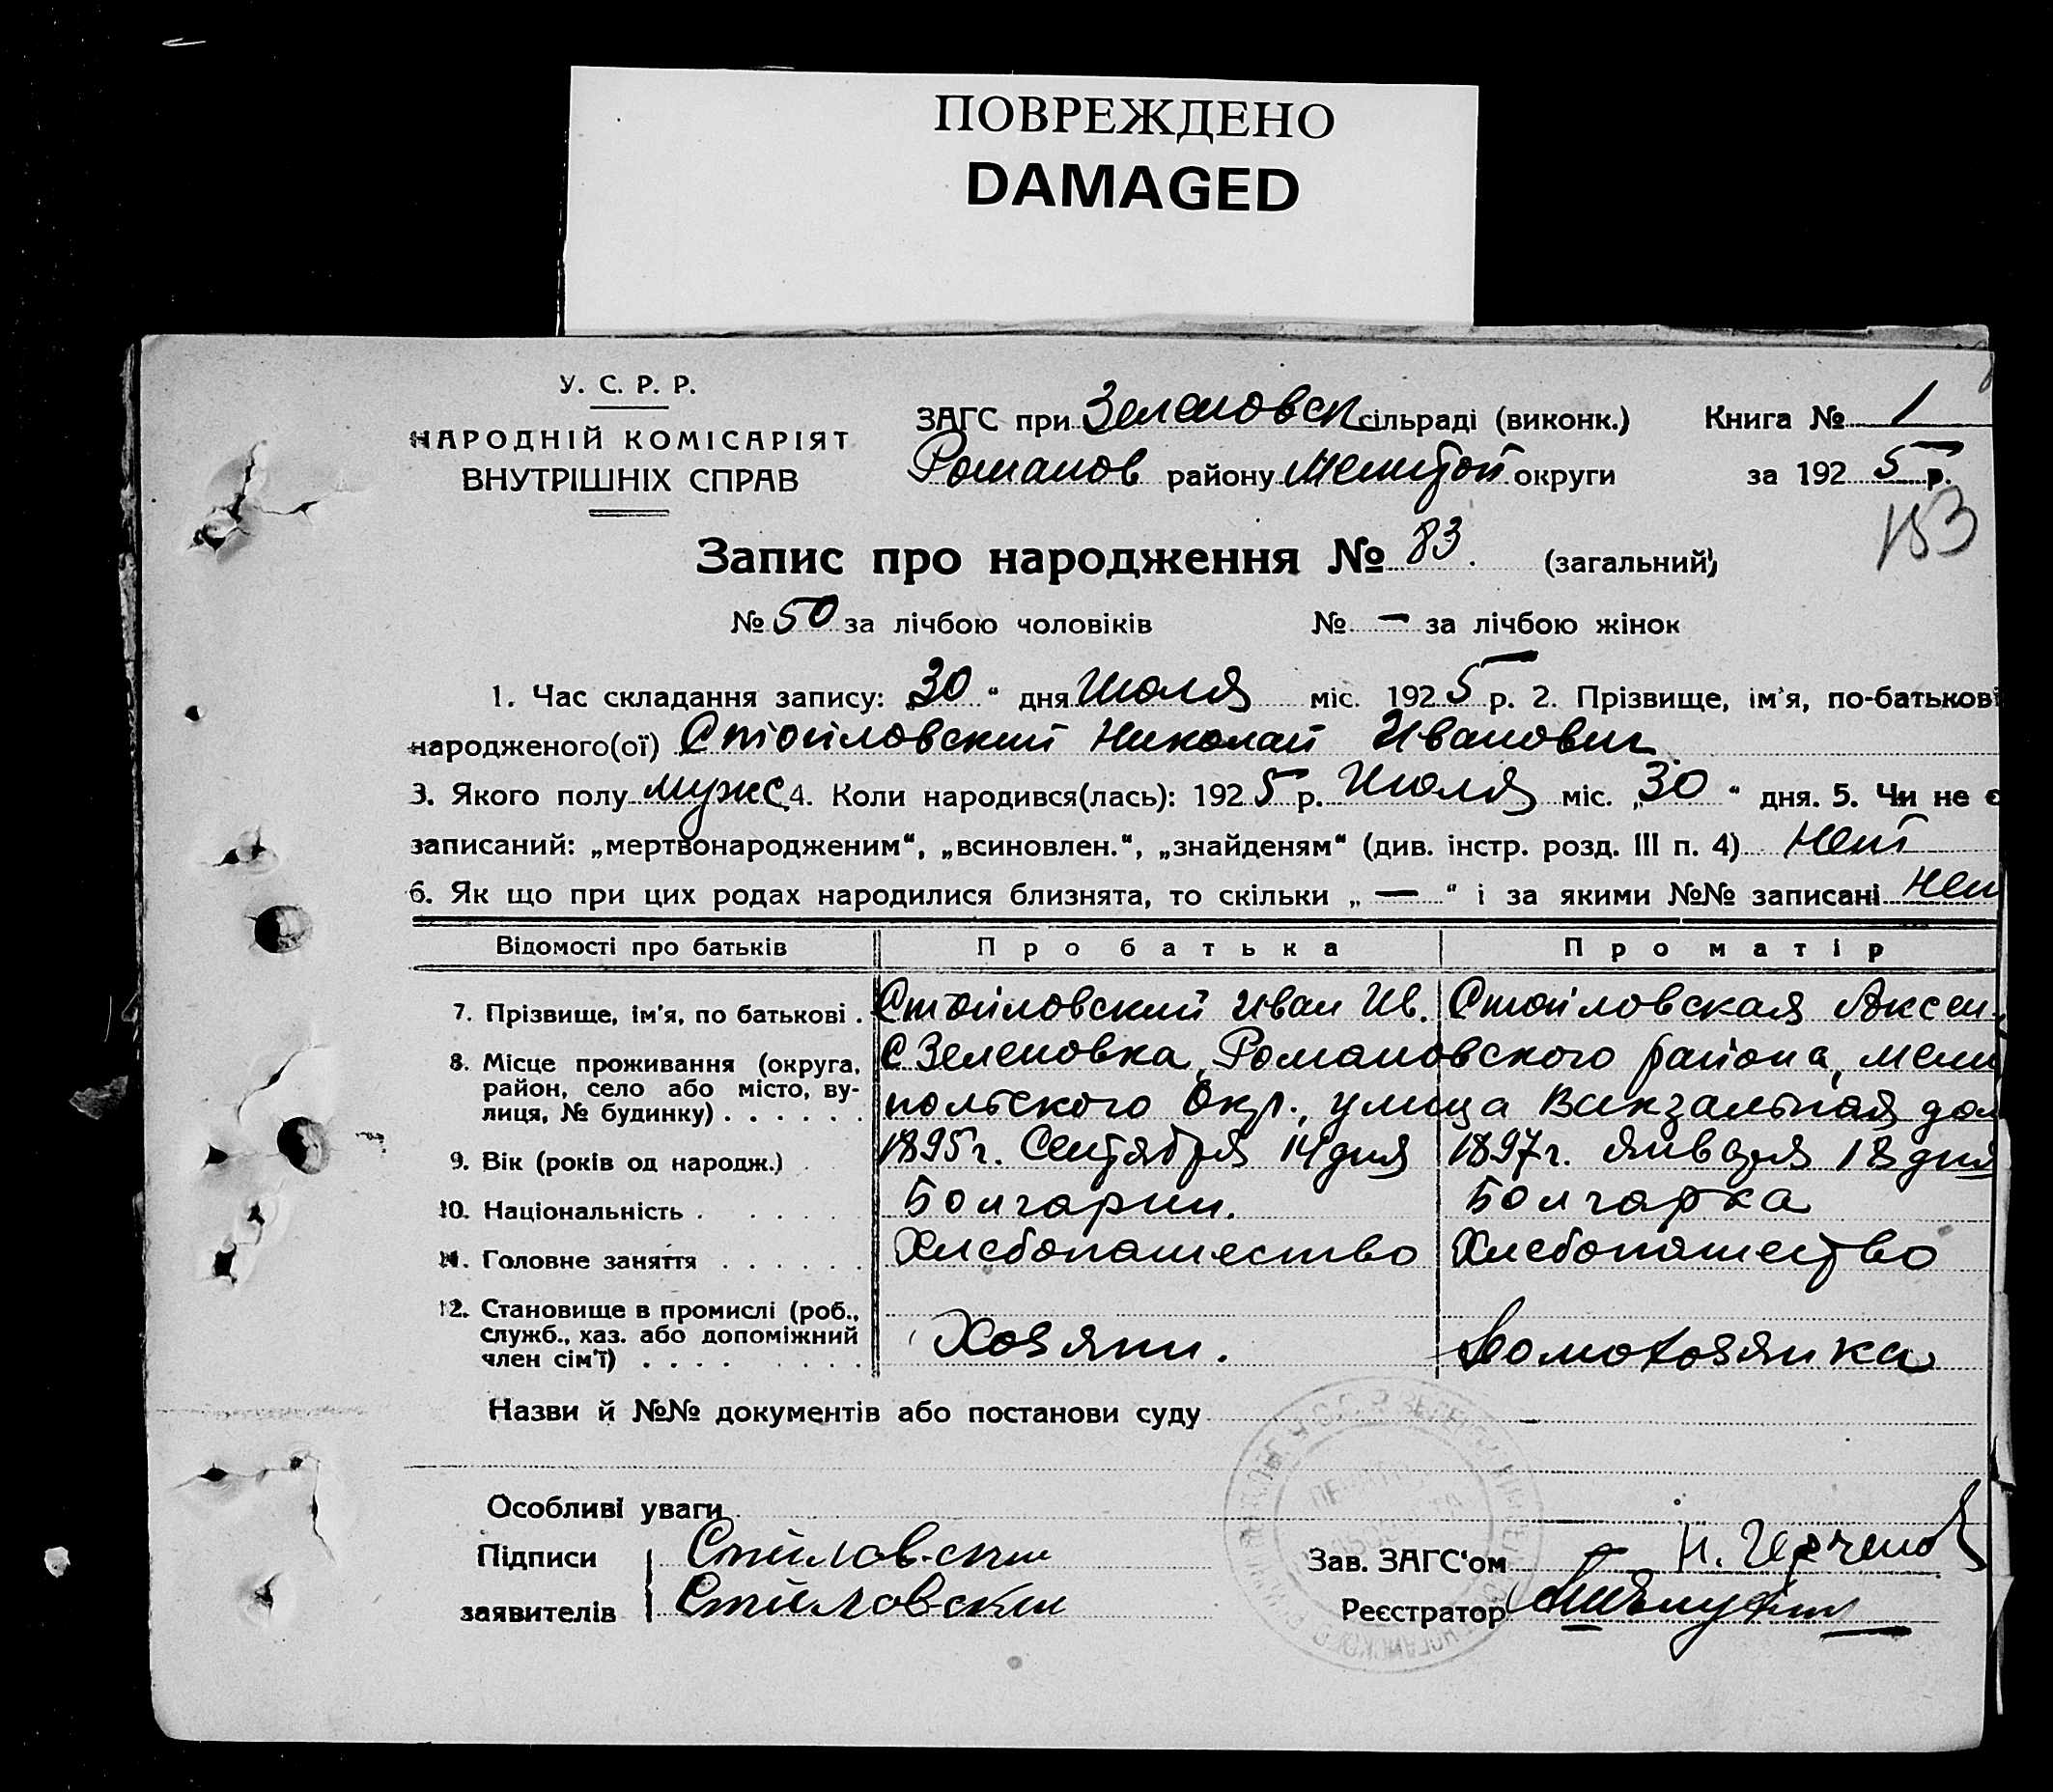 ПОВРЕЖДЕНО
DAMAGED
У. С. Р. Р.
НАРОДНІЙ КОМІСАРІЯТ
ВНУТРІШНІХ СПРАВ
ЗАГС при Зеленовск сільраді (виконк.) Книга № 1
Романов району Мелитой округи за 1925 р.
183
Запис про народження № 83. (загальний)
№ 50 за лічбою чоловіків № — за лічбою жінок
1. Час складання запису: „30“ дня Июля міс. 1925 р. 2. Прізвище, ім'я, по-батькові
народженого(ої) Стойловский Николай Иванович
3. Якого полу мужс 4. Коли народився(лась): 1925 р. Июля міс. „30“ дня. 5. Чи не є
записаний: „мертвонародженим“, „всиновлен.“, „знайденям“ (див. інстр. розд. III п. 4) Нет
6. Як що при цих родах народилися близнята, то скільки „—“ і за якими №№ записані Нет
Відомості про батьків Про батька Про матір
7. Прізвище, ім'я, по батькові . Стойловский Иван Ив. Стойловская Аксен.
8. Місце проживання (округа, район, село або місто, вулиця, № будинку) . . . . . . С Зеленовка, Романовского района, Мели
польского Окр., улица Вокзальная дом
9. Вік (років од народж.) . 1895 г. Сентября 14 дня 1897 г. января 18 дня
10. Національність . . . . . Болгарин. Болгарка
11. Головне заняття . . . . . . Хлебопашество Хлебопашество
12. Становище в промислі (роб., служб., хаз. або допоміжний член сім'ї) . . . . Хозяин. Домохозяйка
Назви й №№ документів або постанови суду —
Особливі уваги
Підписи Стойловский Зав. ЗАГС'ом
заявителів Стойловский Реєстратор